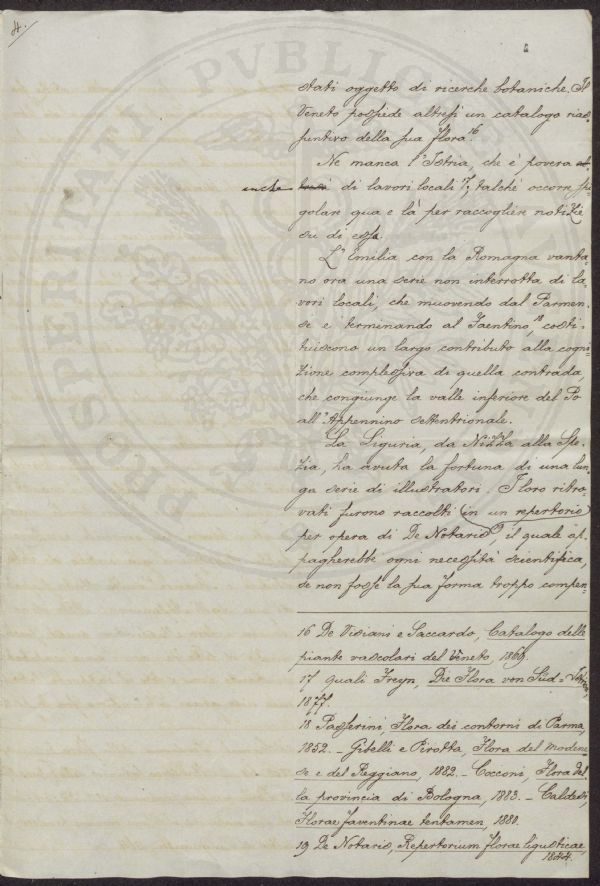 4.
PROSPERITATI PUBLICAE
stati oggetto di ricerche botaniche. Il
Veneto possiede altresì un catalogo rias-
suntivo della sua flora.16
Ne manca l'Istria, che è povera al-
anche di lavori locali 17, talché occorre spi-
golare qua e là per raccogliere notizie
su di essa.
L'Emilia con la Romagna vanta-
no ora una serie non interrotta di la-
vori locali, che muovendo dal Parmen-
se e terminando al Faentino,18 costi-
tuiscono un largo contributo alla cogni-
zione complessiva di quella contrada,
che congiunge la valle inferiore del Po
all'Appennino settentrionale.
La Liguria, da Nizza alla Spe-
zia, ha avuta la fortuna di una lun-
ga serie di illustratori. I loro ritro-
vati furono raccolti (in un repertorio)
per opera di De Notaris19, il quale ap-
pagherebbe ogni necessità scientifica,
se non fosse la sua forma troppo compen-
16 De Visiani e Saccardo, Catalogo delle
piante vascolari del Veneto, 1869.
17 quali Freyn, Die Flora von Süd-Istrien,
1877.
18 Passerini, Flora dei contorni di Parma,
1852. - Gibelli e Pirotta, Flora del Modene-
se e del Reggiano, 1882. - Cocconi, Flora del-
la provincia di Bologna, 1883. - Caldesi,
Florae faventinae tentamen, 1880.
19 De Notaris, Repertorium florae ligusticae,
1844.